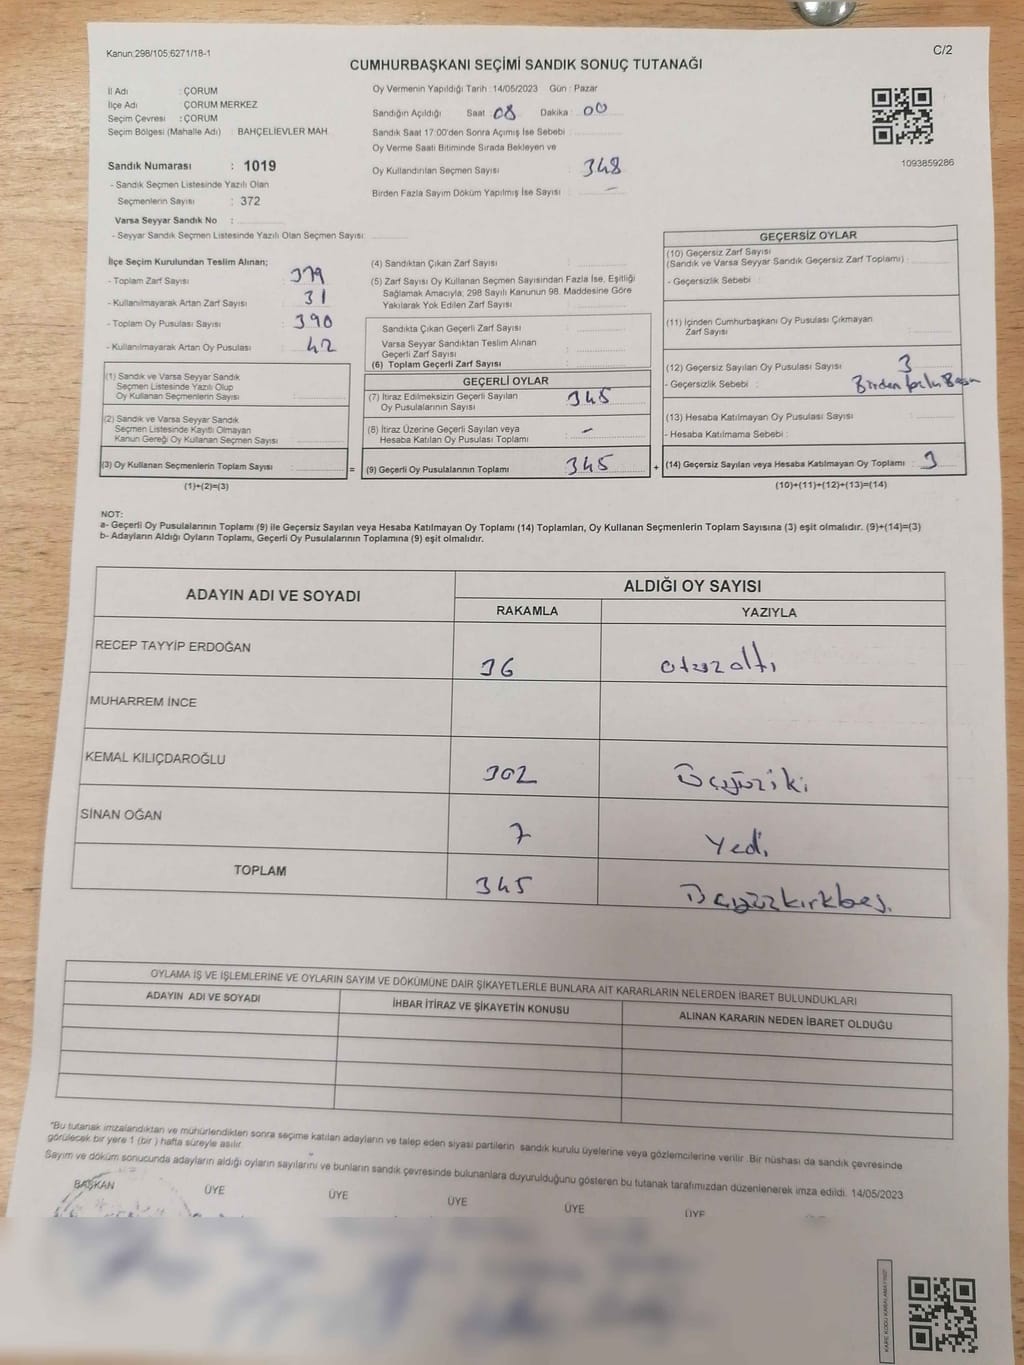 Kanun:298/105;6271/18-1
C/2
CUMHURBAŞKANI SEÇİMİ SANDIK SONUÇ TUTANAĞI
İl Adı : ÇORUM
İlçe Adı ÇORUM MERKEZ
Seçim Çevresi : ÇORUM
Seçim Bölgesi (Mahalle Adı) : BAHÇELİEVLER MAH.
Sandık Numarası : 1019
- Sandık Seçmen Listesinde Yazılı Olan
Seçmenlerin Sayısı : 372
Varsa Seyyar Sandık No :
- Seyyar Sandık Seçmen Listesinde Yazılı Olan Seçmen Sayısı:
Oy Vermenin Yapıldığı Tarih : 14/05/2023 Gün : Pazar
Sandığın Açıldığı Saat : 08 Dakika : 00
Sandık Saat 17:00'den Sonra Açımış İse Sebebi :
Oy Verme Saati Bitiminde Sırada Bekleyen ve
Oy Kullandırılan Seçmen Sayısı : 348
Birden Fazla Sayım Döküm Yapılmış İse Sayısı : -
1093859286
İlçe Seçim Kurulundan Teslim Alınan;
- Toplam Zarf Sayısı : 379
- Kullanılmayarak Artan Zarf Sayısı : 31
- Toplam Oy Pusulası Sayısı : 390
- Kullanılmayarak Artan Oy Pusulası : 42
(1) Sandık ve Varsa Seyyar Sandık
Seçmen Listesinde Yazılı Olup
Oy Kullanan Seçmenlerin Sayısı :
(2) Sandık ve Varsa Seyyar Sandık
Seçmen Listesinde Kayıtlı Olmayan
Kanun Gereği Oy Kullanan Seçmen Sayısı :
(3) Oy Kullanan Seçmenlerin Toplam Sayısı :
(1)+(2)=(3)
(4) Sandıktan Çıkan Zarf Sayısı :
(5) Zarf Sayısı Oy Kullanan Seçmen Sayısından Fazla İse, Eşitliği
Sağlamak Amacıyla, 298 Sayılı Kanunun 98. Maddesine Göre
Yakılarak Yok Edilen Zarf Sayısı :
Sandıkta Çıkan Geçerli Zarf Sayısı :
Varsa Seyyar Sandıktan Teslim Alınan
Geçerli Zarf Sayısı :
(6) Toplam Geçerli Zarf Sayısı :
GEÇERLİ OYLAR
(7) İtiraz Edilmeksizin Geçerli Sayılan
Oy Pusulalarının Sayısı : 345
(8) İtiraz Üzerine Geçerli Sayılan veya
Hesaba Katılan Oy Pusulası Toplamı : -
= (9) Geçerli Oy Pusulalarının Toplamı : 345
GEÇERSİZ OYLAR
(10) Geçersiz Zarf Sayısı
(Sandık ve Varsa Seyyar Sandık Geçersiz Zarf Toplamı) :
- Geçersizlik Sebebi :
(11) İçinden Cumhurbaşkanı Oy Pusulası Çıkmayan
Zarf Sayısı :
(12) Geçersiz Sayılan Oy Pusulası Sayısı : 3
- Geçersizlik Sebebi : Birden fazla
(13) Hesaba Katılmayan Oy Pusulası Sayısı :
- Hesaba Katılmama Sebebi :
+ (14) Geçersiz Sayılan veya Hesaba Katılmayan Oy Toplamı : 3
(10)+(11)+(12)+(13)=(14)
NOT:
a- Geçerli Oy Pusulalarının Toplamı (9) ile Geçersiz Sayılan veya Hesaba Katılmayan Oy Toplamı (14) Toplamları, Oy Kullanan Seçmenlerin Toplam Sayısına (3) eşit olmalıdır. (9)+(14)=(3)
b- Adayların Aldığı Oyların Toplamı, Geçerli Oy Pusulalarının Toplamına (9) eşit olmalıdır.
ADAYIN ADI VE SOYADI
ALDIĞI OY SAYISI
RAKAMLA YAZIYLA
RECEP TAYYİP ERDOĞAN 36 otuzaltı
MUHARREM İNCE
KEMAL KILIÇDAROĞLU 302 Üçyüziki
SİNAN OĞAN 7 Yedi
TOPLAM 345 Üçyüzkırkbeş.
OYLAMA İŞ VE İŞLEMLERİNE VE OYLARIN SAYIM VE DÖKÜMÜNE DAİR ŞİKAYETLERLE BUNLARA AİT KARARLARIN NELERDEN İBARET BULUNDUKLARI
ADAYIN ADI VE SOYADI İHBAR İTİRAZ VE ŞİKAYETİN KONUSU ALINAN KARARIN NEDEN İBARET OLDUĞU
"Bu tutanak imzalandıktan ve mühürlendikten sonra seçime katılan adayların ve talep eden siyasi partilerin sandık kurulu üyelerine veya gözlemcilerine verilir. Bir nüshası da sandık çevresinde
görülecek bir yere 1 (bir ) hafta süreyle asılır.
Sayım ve döküm sonucunda adayların aldığı oyların sayılarını ve bunların sandık çevresinde bulunanlara duyurulduğunu gösteren bu tutanak tarafımızdan düzenlenerek imza edildi. 14/05/2023
BAŞKAN ÜYE ÜYE ÜYE ÜYE ÜYE